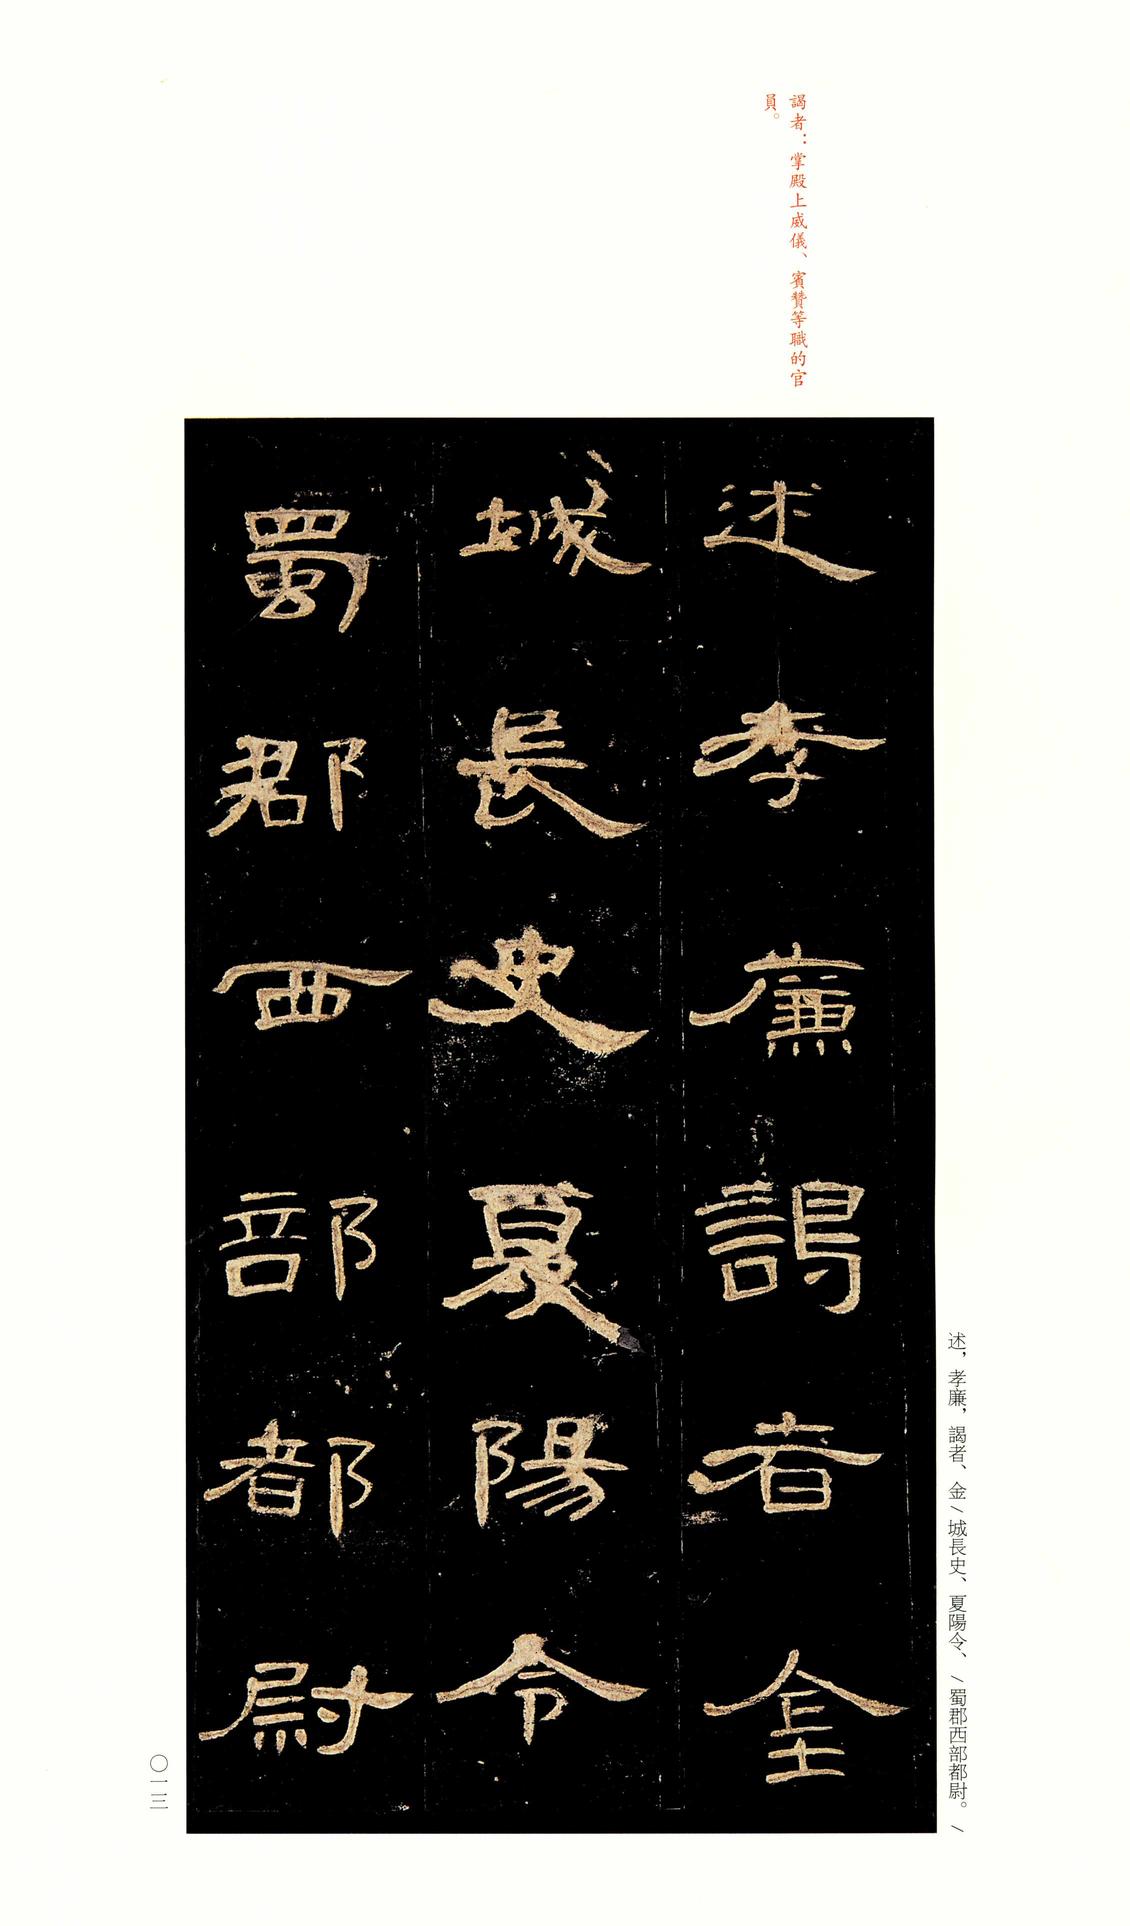 謁者：掌殿上威儀、賓贊等職的官
員。
述孝廉謁者金
城長史夏陽令
蜀郡西部都尉
述，孝廉，謁者、金/城長史、夏陽令、/蜀郡西部都尉。/
〇一三